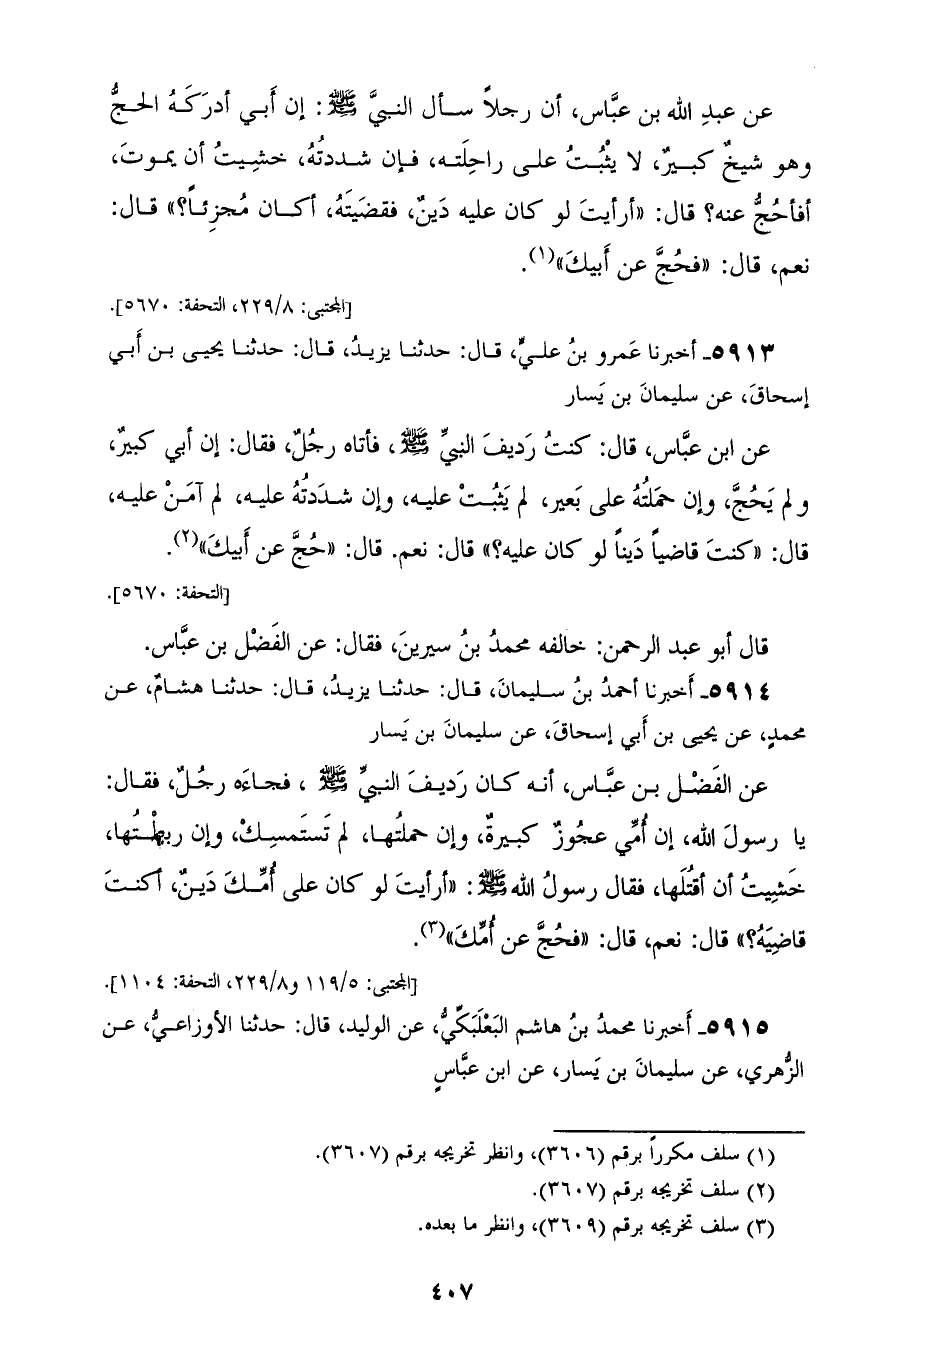 عن عبدِ الله بن عبَّاس، أن رجلاً سأل النبيَّ ﷺ: إن أَبي أدرَكَهُ الحجُّ
وهو شيخٌ كبيرٌ، لا يثْبُتُ على راحِلَته، فإن شددتُهُ، خشِيتُ أن يموتَ،
أفأحُجُّ عنه؟ قال: «أرأيتَ لو كان عليه دَينٌ، فقضَيتَهُ، أكان مُجزِئاً؟» قال:
نعم، قال: «فحُجَّ عن أَبيكَ»(١).
[المجتبى: ٢٢٩/٨، التحفة: ٥٦٧٠].
٥٩١٣ـ أخبرنا عَمرو بنُ عليٍّ، قال: حدثنا يزيدُ، قال: حدثنا يحيى بن أَبي
إسحاقَ، عن سليمانَ بن يَسار
عن ابن عبَّاس، قال: كنتُ رَديفَ النبيِّ ﷺ، فأتاه رجُلٌ، فقال: إن أبي كبيرٌ،
ولم يَحُجَّ، وإن حَملتُهُ على بَعير، لم يَثبُتْ عليه، وإن شددتُهُ عليه، لم آمَنْ عليه،
قال: «كنتَ قاضياً دَيناً لو كان عليه؟» قال: نعم. قال: «حُجَّ عن أَبيكَ»(٢).
[التحفة: ٥٦٧٠].
قال أبو عبد الرحمن: خالفه محمدُ بنُ سيرينَ، فقال: عن الفَضْل بن عبَّاس.
٥٩١٤ـ أَخبرنا أحمدُ بنُ سليمانَ، قال: حدثنا يزيدُ، قال: حدثنا هشامٌ، عن
محمدٍ، عن يحيى بن أَبي إسحاقَ، عن سليمانَ بن يَسار
عن الفَضْل بن عبَّاس، أنه كان رَديفَ النبيِّ ﷺ ، فجاءَه رجُلٌ، فقال:
يا رسولَ الله، إن أُمِّي عجُوزٌ كبيرةٌ، وإن حملتُها، لم تَستَمسِكْ، وإن ربطْتُها،
خَشِيتُ أن أقتُلَها، فقال رسولُ الله ﷺ: «أرأيتَ لو كان على أُمِّكَ دَينٌ، أكنتَ
قاضِيَهُ؟» قال: نعم، قال: «فحُجَّ عن أُمِّكَ»(٣).
[المجتبى: ١١٩/٥ و٢٢٩/٨، التحفة: ١١٠٤٤].
٥٩١٥ـ أَخبرنا محمدُ بنُ هاشم البَعْلَبَكِّيُّ، عن الوليد، قال: حدثنا الأوزاعيُّ، عن
الزُّهري، عن سليمانَ بن يَسار، عن ابن عبَّاسٍ
(١) سلف مكرراً برقم (٣٦٠٦)، وانظر تخريجه برقم (٣٦٠٧).
(٢) سلف تخريجه برقم (٣٦٠٧).
(٣) سلف تخريجه برقم (٣٦٠٩)، وانظر ما بعده.
٤٠٧